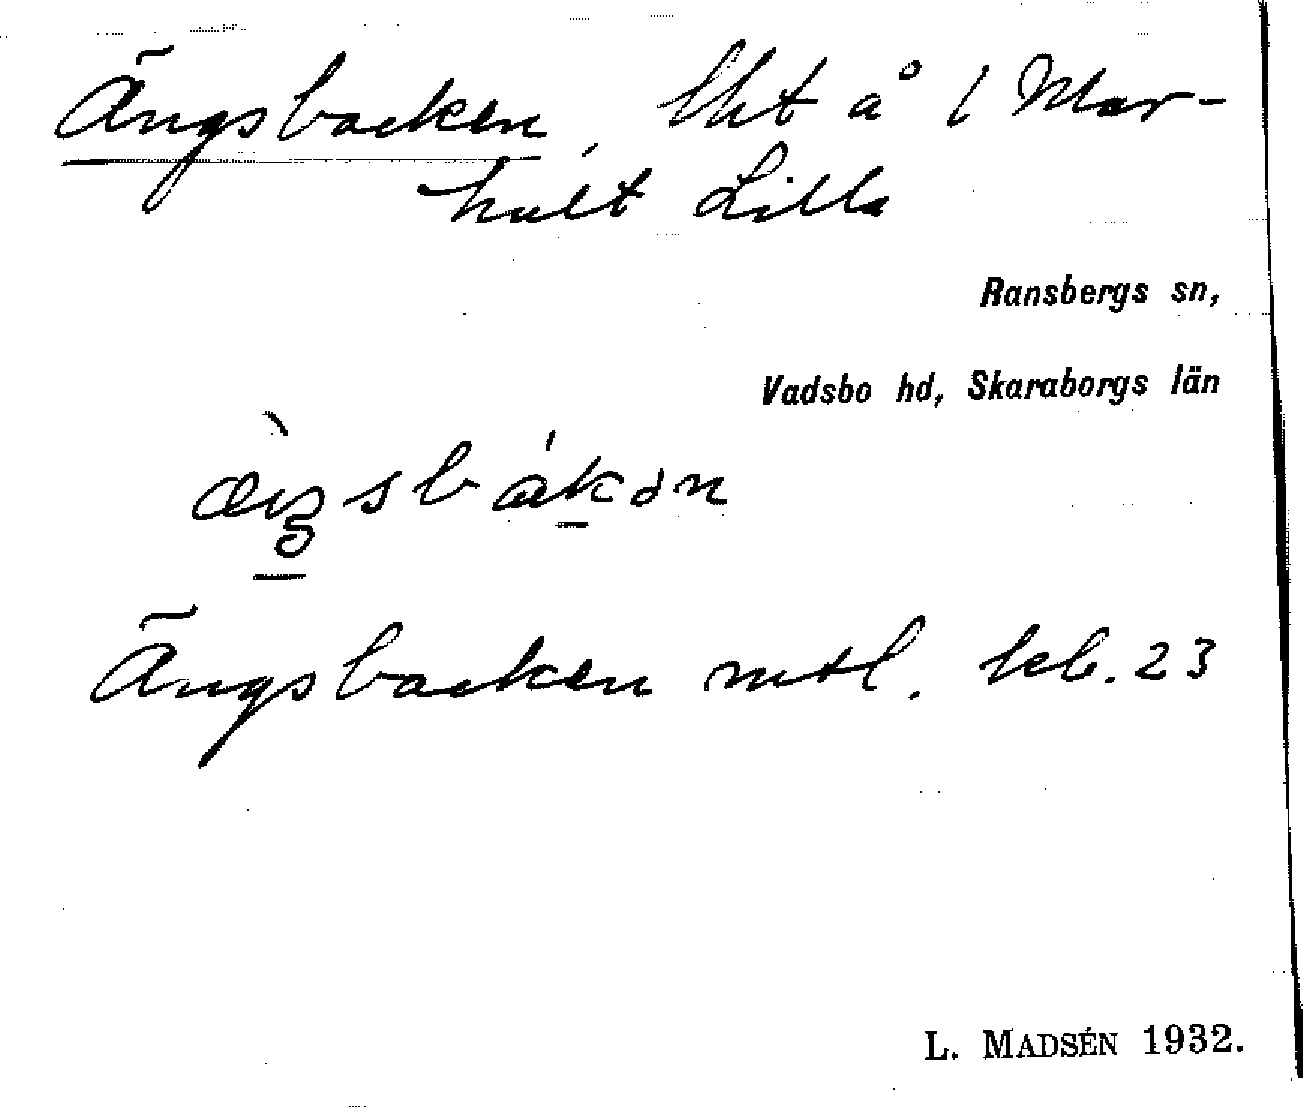 Ängsbacken, lht å 1 Mar-
hult Lilla
Ransbergs sn,
Vadsbo hd, Skaraborgs län
Ängsbacken mtl. kb. 23
L. MADSÉN 1932.